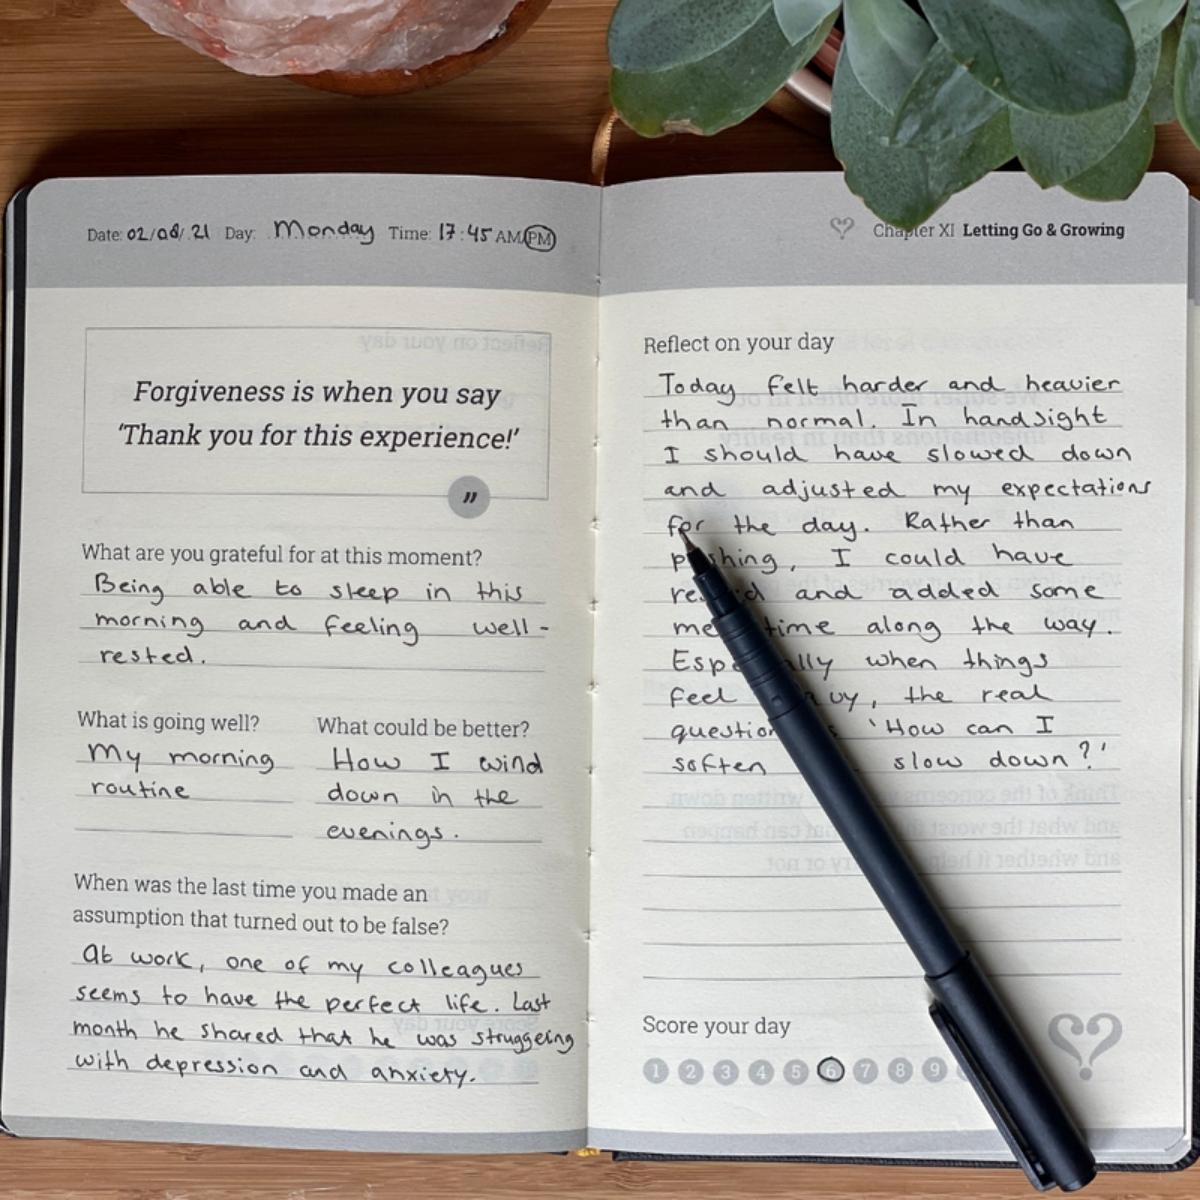 Date: 02/08/21 Day: Monday Time: 17:45 AM/PM
Forgiveness is when you say
'Thank you for this experience!'
"
What are you grateful for at this moment?
Being able to sleep in this
morning and feeling well-
rested.
What is going well?
My morning
routine
What could be better?
How I wind
down in the
evenings.
When was the last time you made an
assumption that turned out to be false?
At work, one of my colleagues
seems to have the perfect life. Last
month he shared that he was struggeing
with depression and anxiety.
Chapter XI Letting Go & Growing
Reflect on your day
Today felt harder and heavier
than normal. In handsight
I should have slowed down
and adjusted my expectations
for the day. Rather than
pushing, I could have
and added some
me time along the way.
Especially when things
feel the real
question 'How can I
soften slow down?'
Score your day
1 2 3 4 5 6 7 8 9